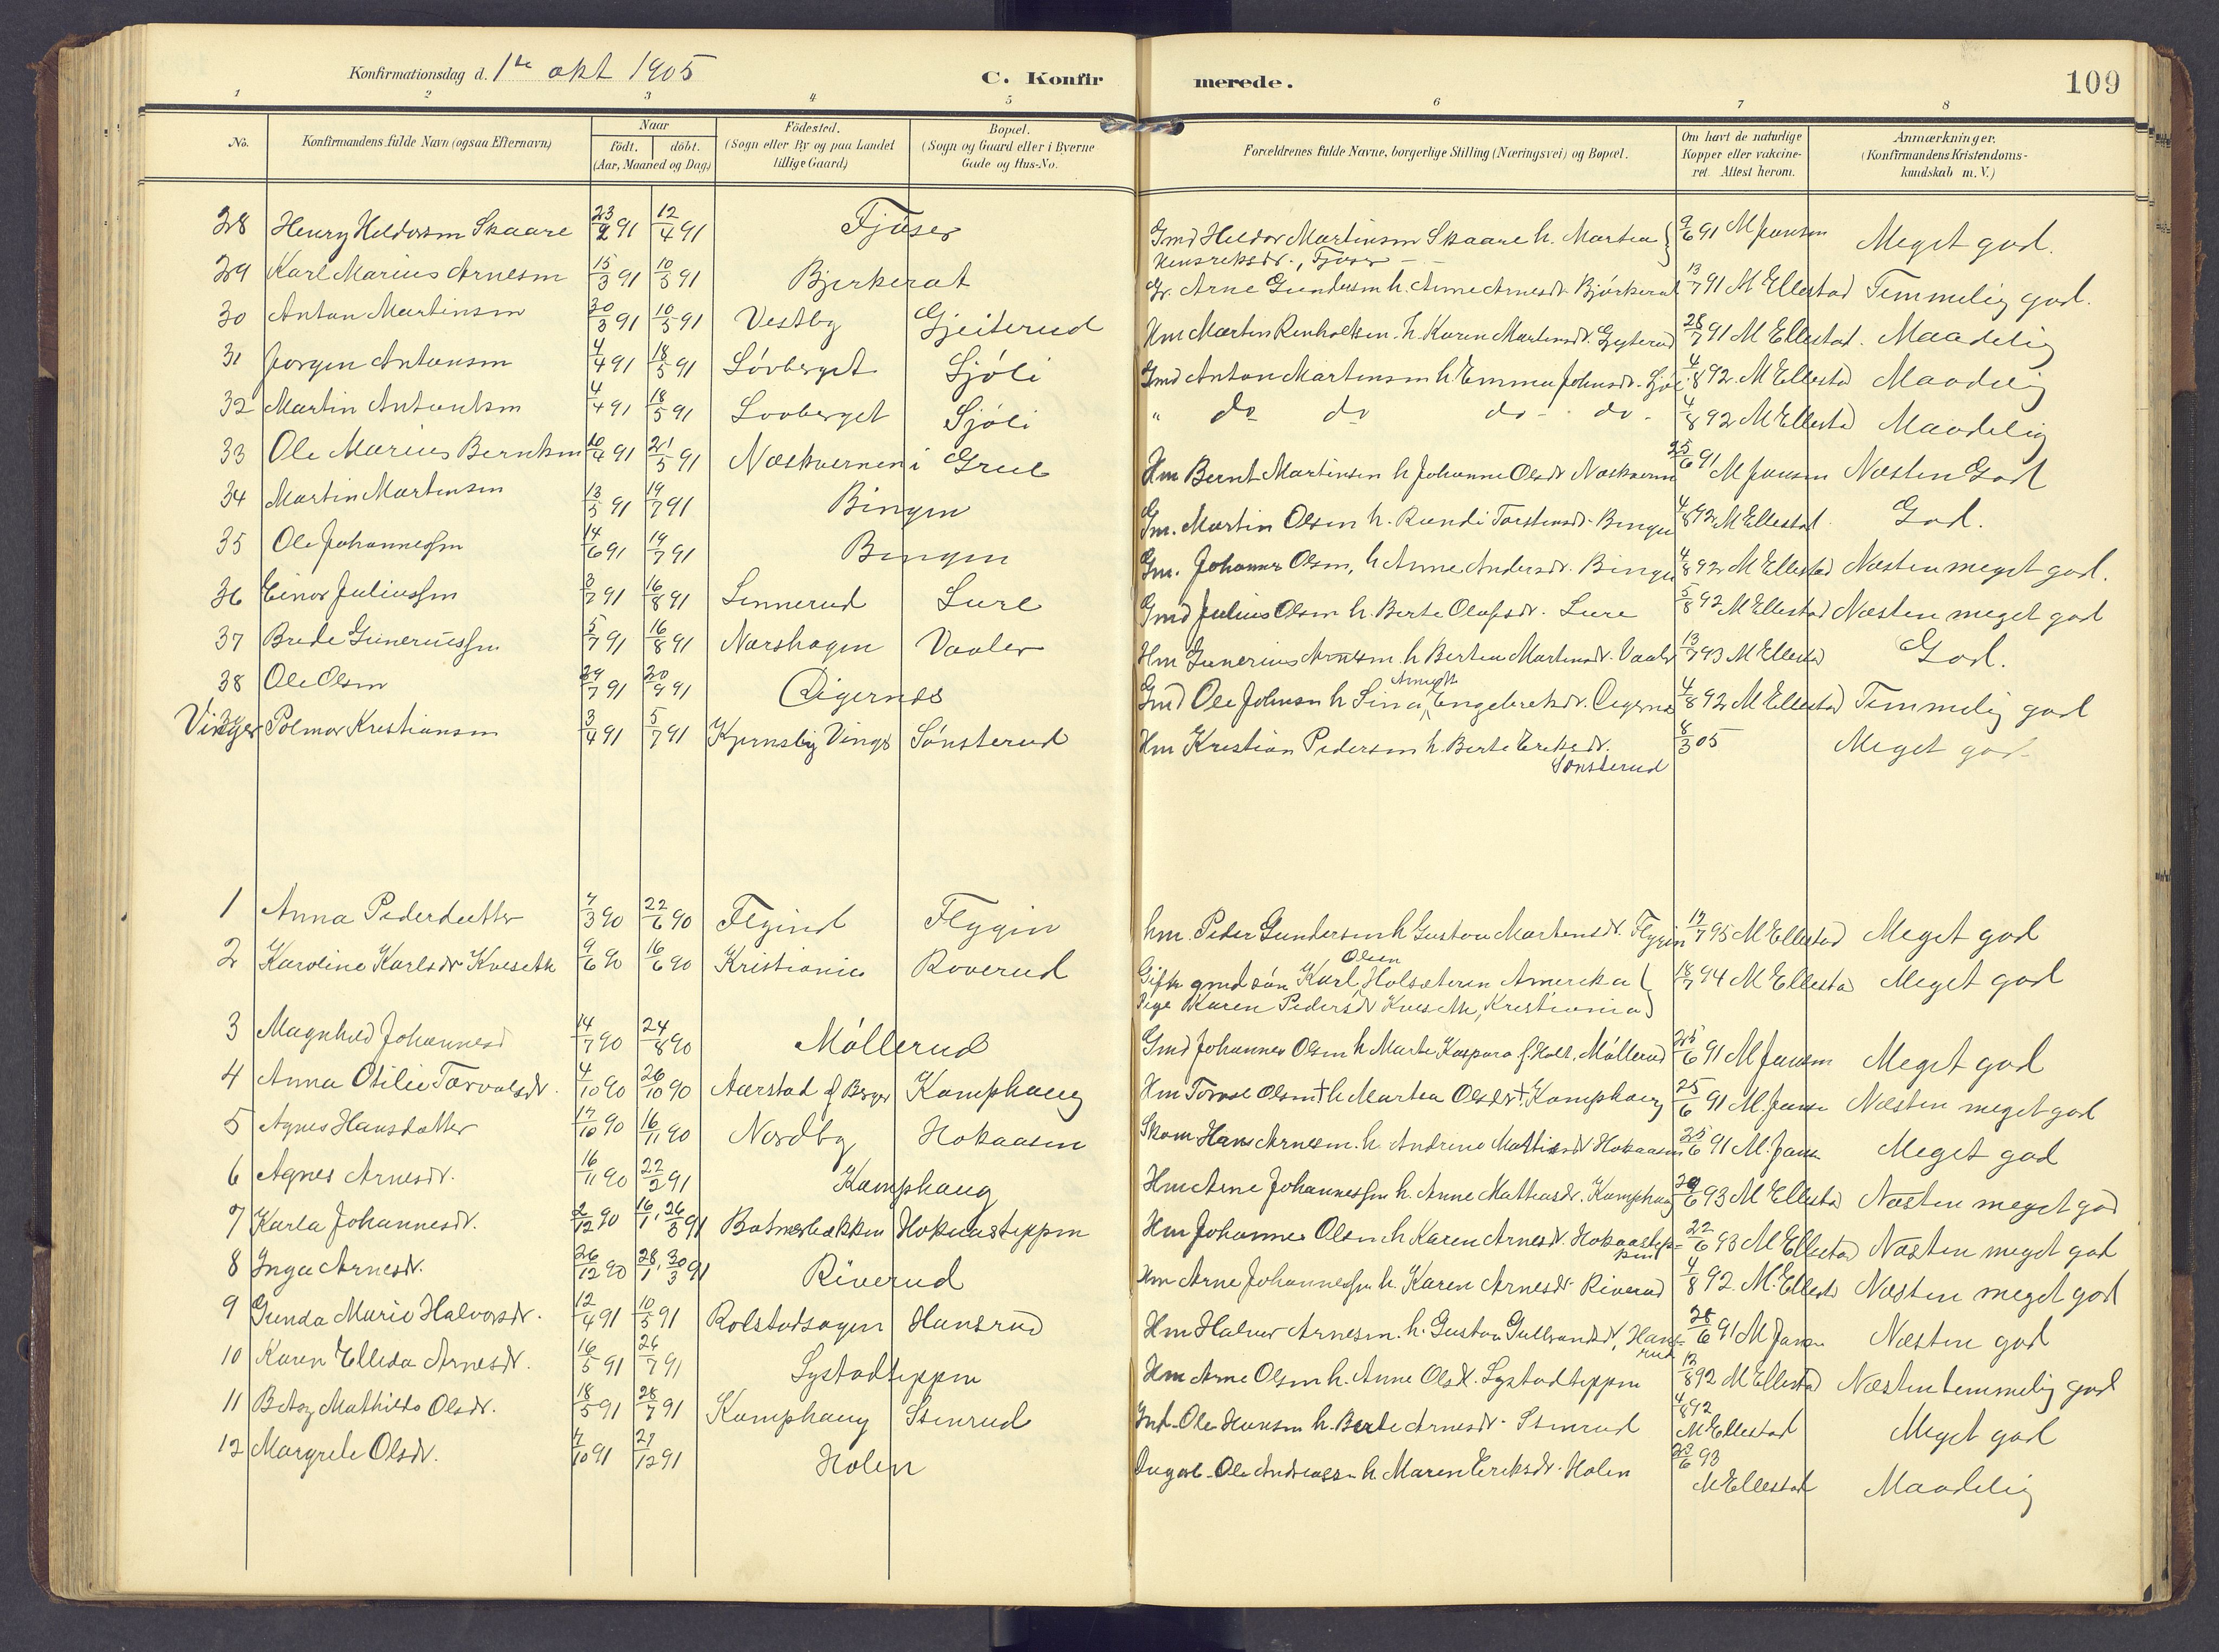 Konfirmationsdag d. 1ste okt 1905
C. Konfirmerede.
109
1 2 3 4 5 6 7 8
No. Konfirmandens fulde Navn (ogsaa Efternavn) Naar födt. döbt. (Aar, Maaned og Dag) Födested. (Sogn eller By og paa Landet tillige Gaard) Bopæl. (Sogn og Gaard eller i Byerne Gade og Hus-No. Forældrenes fulde Navne, borgerlige Stilling (Næringsvei) og Bopæl. Om havt de naturlige Kopper eller vakcineret. Attest herom. Anmærkninger. (Konfirmandens Kristendomskundskab m. V.)
28 Henry Heldorsen Skaare 23/2 91 12/4 91 Fjøser Gmd Heldor Martinsen Skaare h. Martea Henriksdr., Fjøser 9/6 91 M Jansen Meget god.
29 Karl Marius Arnesen 15/3 91 10/3 91 Bjerkerat Gr. Arne Gundersen h. Anne Arnesdr. Bjørkerat 13/7 91 M Ellestad Temmelig god.
30 Anton Martinsen 30/3 91 10/5 91 Vestby Gjeiterud Hm Martin Renholtsen h. Karen Martinsdr. Gyterud 28/7 91 M Ellestad. Maadelig
31 Jørgen Antonsen 4/4 91 18/5 91 Løvberget Sjøli Gmd Anton Martinsen h. Emma Johnsdr. Sjøli 4/8 92 M Ellestad Maadelig
32 Martin Antonsen 4/4 91 18/5 91 Lovberget Sjøli " do do do do 4/8 92 M Ellestad Maadelig
33 Ole Marius Berntsen 10/4 91 21/5 91 Næskvernen i Grue Hm Bernt Martinsen h Johanne Olsdr Næskvern 25/6 91 M Jansen Næsten God
34 Martin Martinsen 13/5 91 19/7 91 Bingen Gm. Martin Olsen h. Randi Torstensdr. Bingen 4/8 92 M Ellestad God.
35 Ole Johannessen 14/6 91 19/7 91 Bingen Gm. Johannes Olsen, h Anne Andersdr. Bingen 4/8 92 M Ellestad Næsten meget god.
36 Einar Juliussen 3/7 91 16/8 91 Linnerud Lure Gmd Julius Olsen h. Berte Olafsdr. Lure 5/8 92 M Ellestad Næsten meget god
37 Brede Guneriussen 5/7 91 16/8 91 Norshagen Vaaler Hm Gunerius Arnesen h Bertea Martinsdr. Vaaler 13/7 93 M Ellestad God.
38 Ole Olsen 29/7 91 20/9 91 Oigernes Gmd Ole Johnsen h Lina Engebretsdr. Oigernes 4/8 92 M Ellestad Temmelig god
Vinger Polmar Kristiansen 3/4 91 5/7 91 Kjernsby Vinger Sønsterud Hm Kristian Pedersen h. Berte Eriksdr. Sønsterud 8/3 05 Meget god
1 Anna Pedersdatter 7/3 90 22/6 90 Flygind Flygin hm. Peder Gundersen h Gustava Martinsdr. Flygin 17/7 95 M Ellestad Meget god
2 Karoline Karlsdr Kveseth 9/6 90 16/6 90 Kristiania Roverud Gift gmd søn Karl Olsen Holsæteren Amerika Pige Karen Pedersdr Kveseth, Kristiania 18/7 94 M Ellestad Meget god
3 Magnhild Johannesd 14/7 90 24/8 90 Møllerud Gmd Johannes Olsen h Marte Kaspara f. Holt. Møllerud 25/6 91 M Jansen Meget god
4 Anna Otilie Torvalsdr. 4/10 90 26/10 90 Aarstad Kamphaug Hm Torval Olsen † h Martea Olsdr †. Kamphaug 25/6 91 M. Jansen Næsten meget god
5 Agnes Hansdatter 17/10 90 16/11 90 Nordby Hokaasen Skom Hans Arnesen. h. Andrine Mathisdr Hokaasen 25/6 91 M. Jansen Meget god
6 Agnes Arnesdr. 16/11 90 22/2 91 Kamphaug Hm Arne Johannessen h. Anne Mathiasdr. Kamphaug 29/6 93 M Ellestad Næsten meget god
7 Karla Johannesdr. 2/12 90 16/1, 26/3 91 Batnesbakken Hokaasteppen Hm Johannes Olsen h Karen Arnesdr. Hokaasteppen 22/6 93 M Ellestad Næsten meget god
8 Inga Arnesdr. 26/12 90 28/1, 30/3 91 Riverud Hm Arne Johannessen h. Karen Arnesdr. Riverud 4/8 92. M. Ellestad Næsten meget god
9 Gunda Marie Halvorsdr. 12/4 91 10/5 91 Rolstadsagen Hansrud Hm Halvor Arnesen. h. Gustava Gulbrandsdr, Hansrud 28/6 91 M Jansen Næsten god
10 Karen Ellida Arnesdr. 16/5 91 26/7 91 Lystadteppen Hm Arne Olsen h. Anne Olsdr. Lystadteppen 13/8 92 M Ellestad Næsten temmelig god
11 Betsy Mathilde Olsdr. 18/5 91 28/7 91 Kamphaug Stenrud Ind. Ole Hansen h. Berte Arnesdr. Stenrud 4/8 92 M Ellestad Meget god
12 Margrete Olsdr. 7/10 91 27/12 91 Holen Ole Andreassen h. Maren Eriksdr. Holen 22/6 93 M Ellestad Maadelig